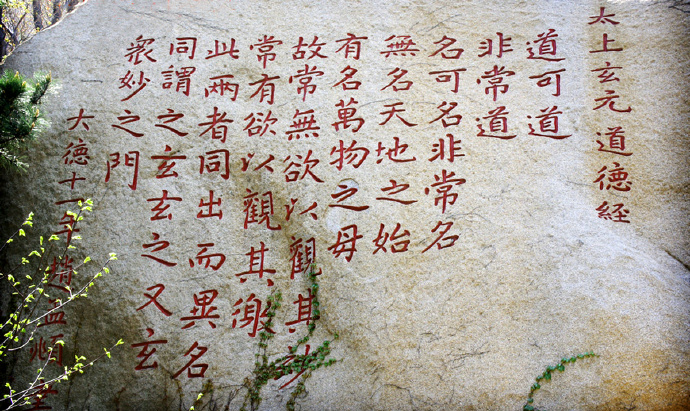 太上玄元道德經
道可道
非常道
名可名非常名
無名天地之始
有名萬物之母
故常無欲以觀其妙
常有欲以觀其徼
此兩者同出而異名
同謂之玄玄之又玄
衆妙之門
大德十一年趙孟頫